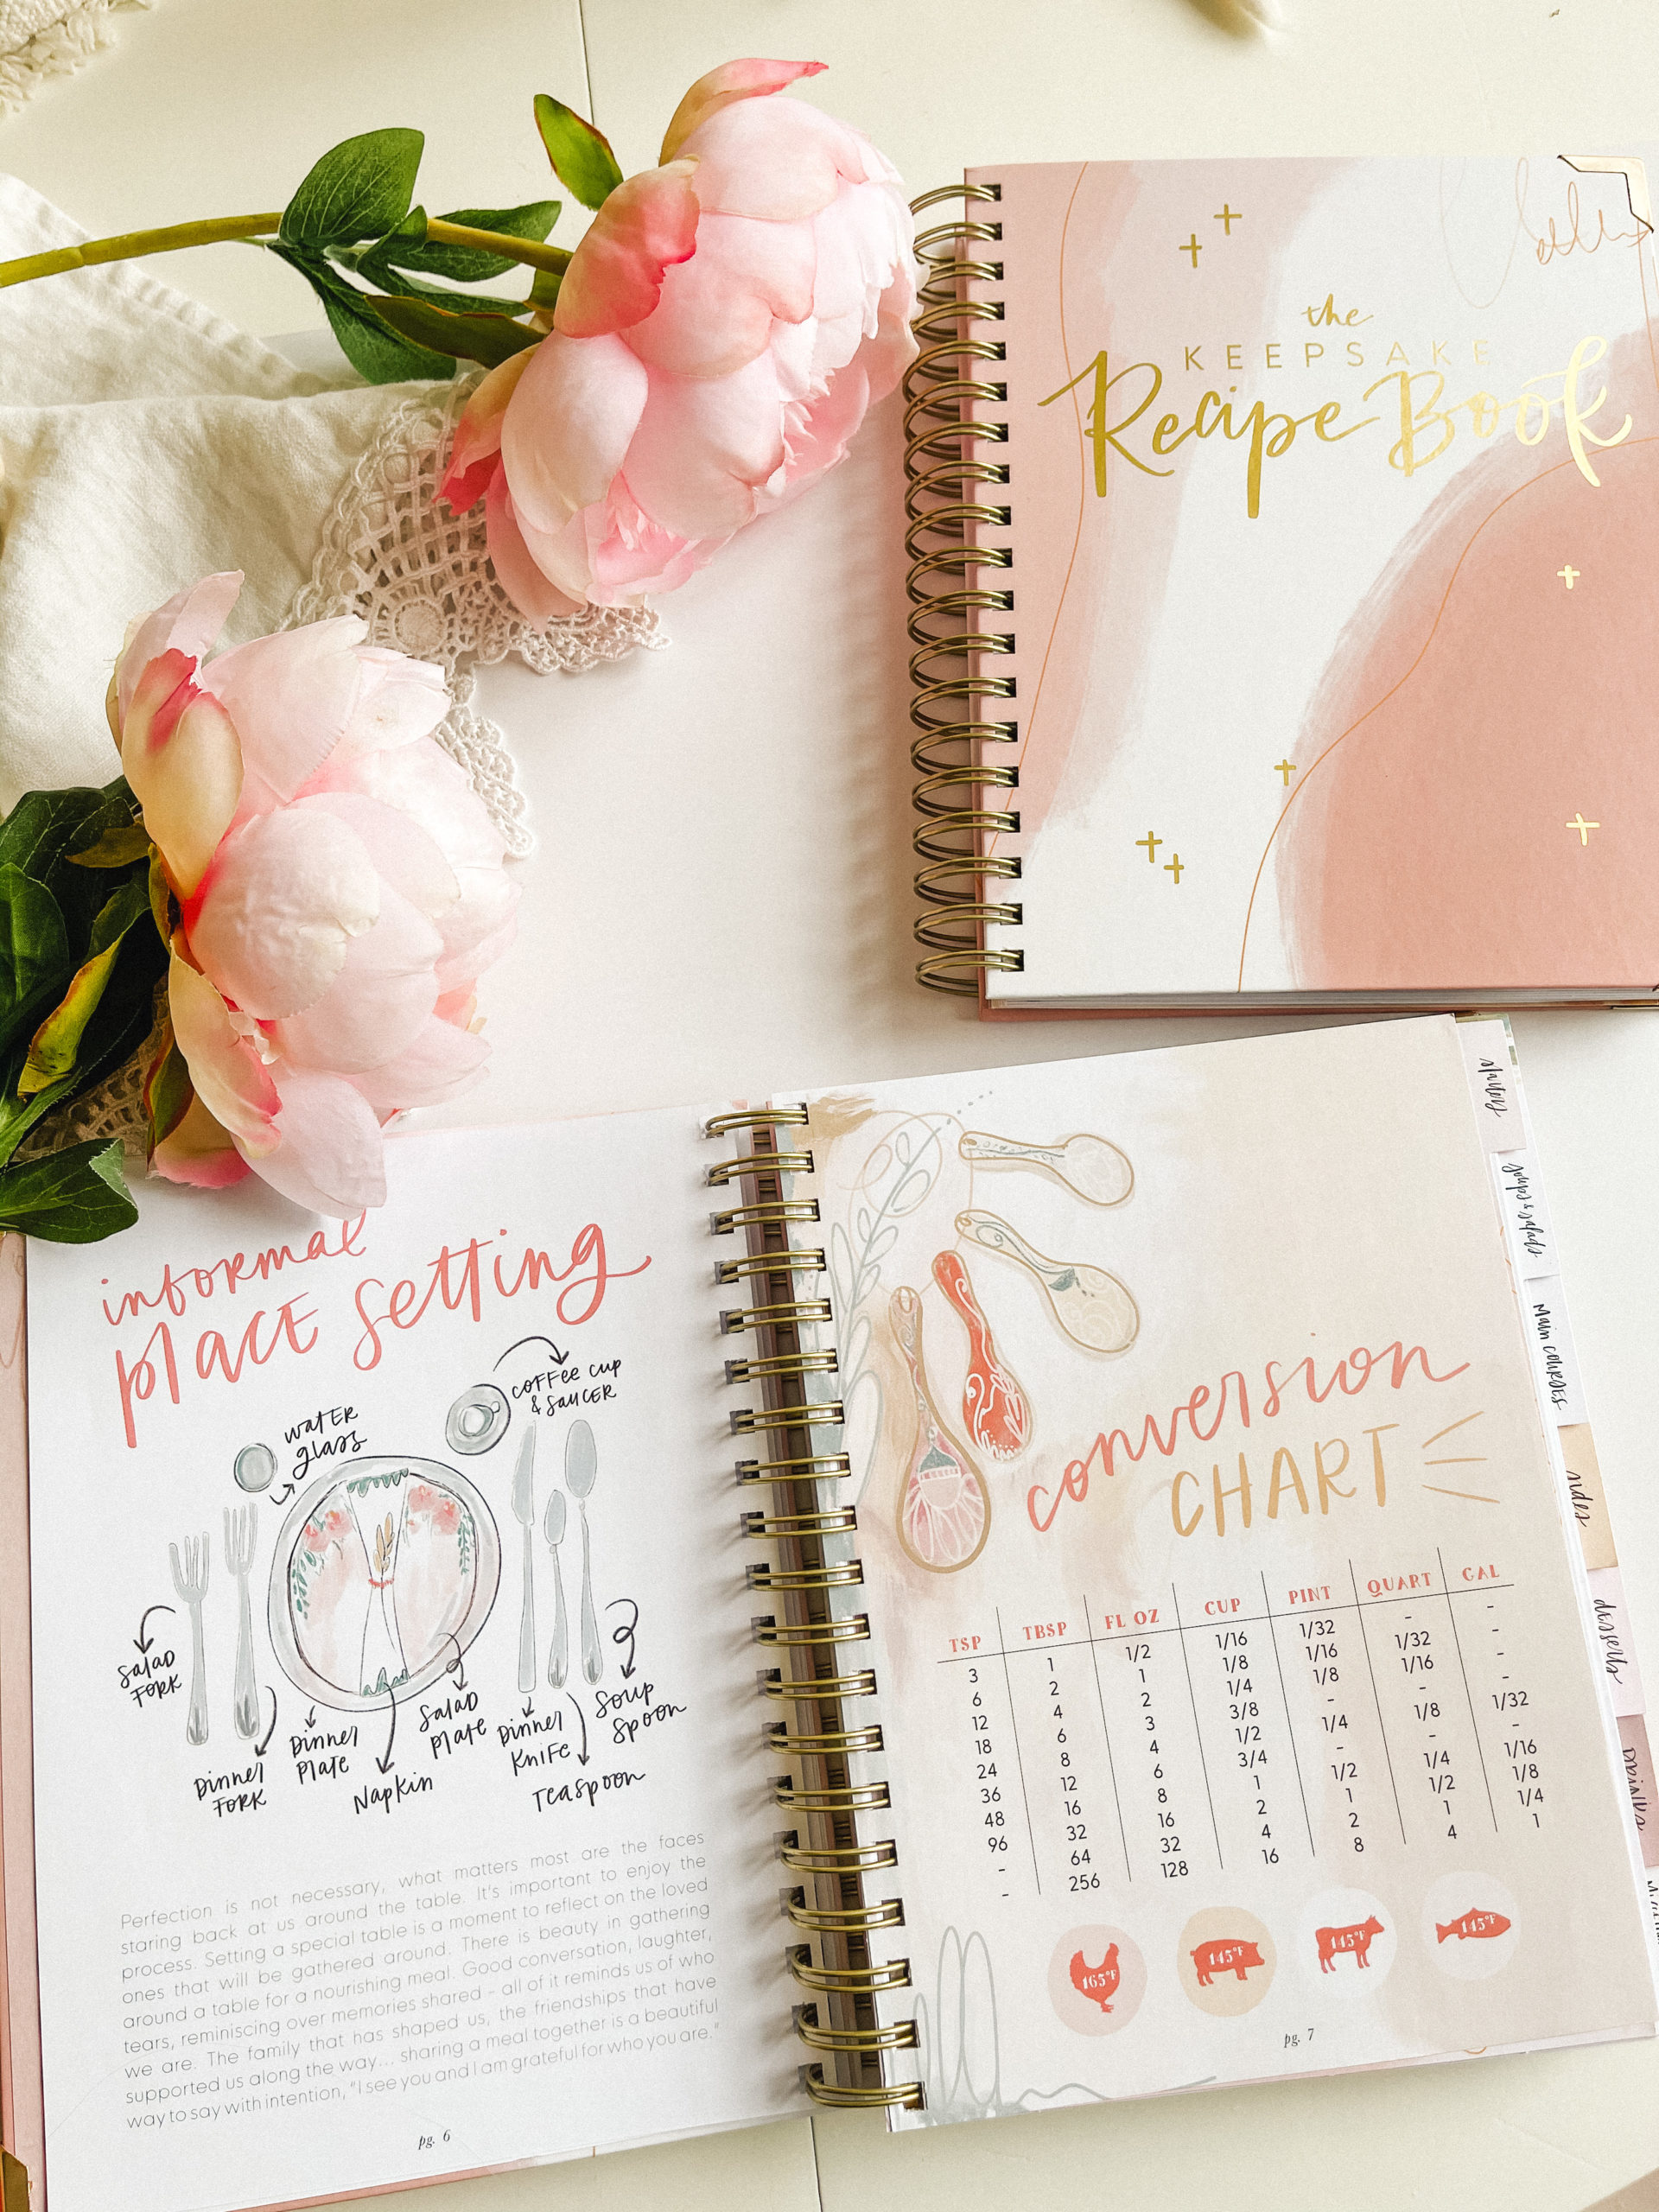 the
KEEPSAKE
Recipe Book
informal
place setting
water
glass
coffee cup
& saucer
salad
fork
dinner
fork
dinner
plate
napkin
salad
plate
dinner
knife
teaspoon
soup
spoon
Perfection is not necessary, what matters most are the faces
staring back at us around the table. It's important to enjoy the
process. Setting a special table is a moment to reflect on the loved
ones that will be gathered around. There is beauty in gathering
around a table for a nourishing meal. Good conversation, laughter,
tears, reminiscing over memories shared - all of it reminds us of who
we are. The family that has shaped us, the friendships that have
supported us along the way... sharing a meal together is a beautiful
way to say with intention, "I see you and I am grateful for who you are."
pg. 6
conversion
CHART
TSP TBSP FL OZ CUP PINT QUART GAL
3 1 1/2 1/16 1/32 - -
6 2 1 1/8 1/16 1/32 -
12 4 2 1/4 1/8 1/16 -
18 6 3 3/8 - - -
24 8 4 1/2 1/4 1/8 1/32
36 12 6 3/4 - - -
48 16 8 1 1/2 1/4 1/16
96 32 16 2 1 1/2 1/8
- 64 32 4 2 1 1/4
- 256 128 16 8 4 1
165°F
145°F
145°F
145°F
pg. 7
soups & salads
main courses
sides
desserts
drinks